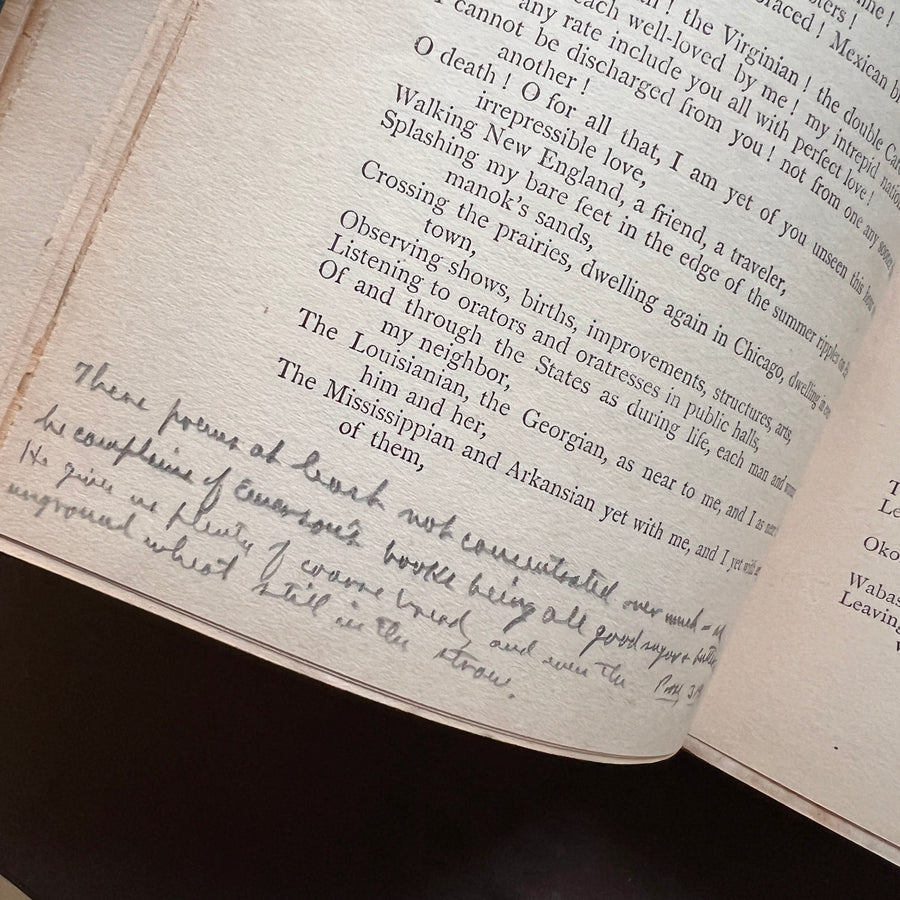 ine !
sters !
braced ! Mexican b
! the Virginian ! the double Car
each well-loved by me ! my intrepid natio
any rate include you all with perfect love !
I cannot be discharged from you ! not from one any sooner
another !
O death ! O for all that, I am yet of you unseen this hour
irrepressible love,
Walking New England, a friend, a traveler,
Splashing my bare feet in the edge of the summer ripples on
manok's sands,
Crossing the prairies, dwelling again in Chicago, dwelling in
town,
Observing shows, births, improvements, structures, arts,
Listening to orators and oratresses in public halls,
Of and through the States as during life, each man and
my neighbor,
The Louisianian, the Georgian, as near to me, and I as near
him and her,
The Mississippian and Arkansian yet with me, and I yet with
of them,
These poems at least not concentrated over much - as
he complains of Emerson's books being all good sugar & butter
He gives us plenty of coarse bread, and even the
unground wheat still in the straw.
T
Le
Oko
Wabas
Leaving